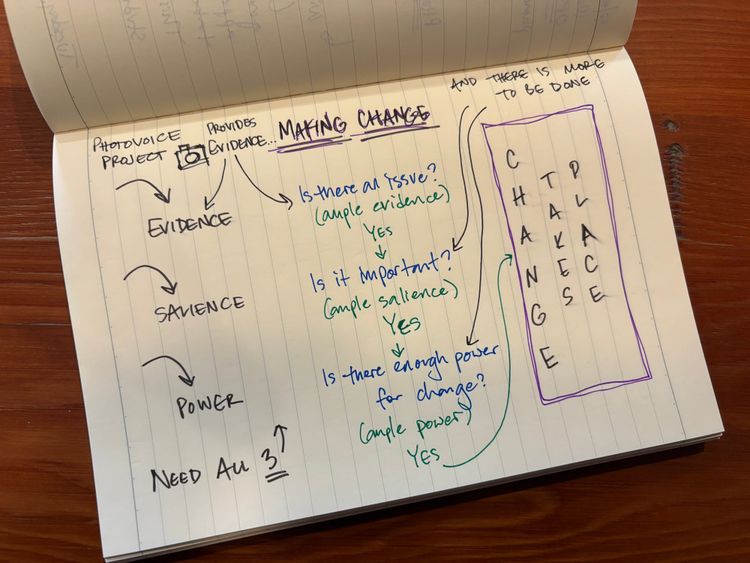 AND THERE IS MORE
TO BE DONE
PHOTOVOICE
PROJECT
PROVIDES
EVIDENCE...
MAKING CHANGE
EVIDENCE
SALIENCE
POWER
NEED ALL 3
Is there an issue?
(ample evidence)
YES
Is it important?
(ample salience)
YES
Is there enough power
for change?
(ample power)
YES
CHANGE
TAKES
PLACE